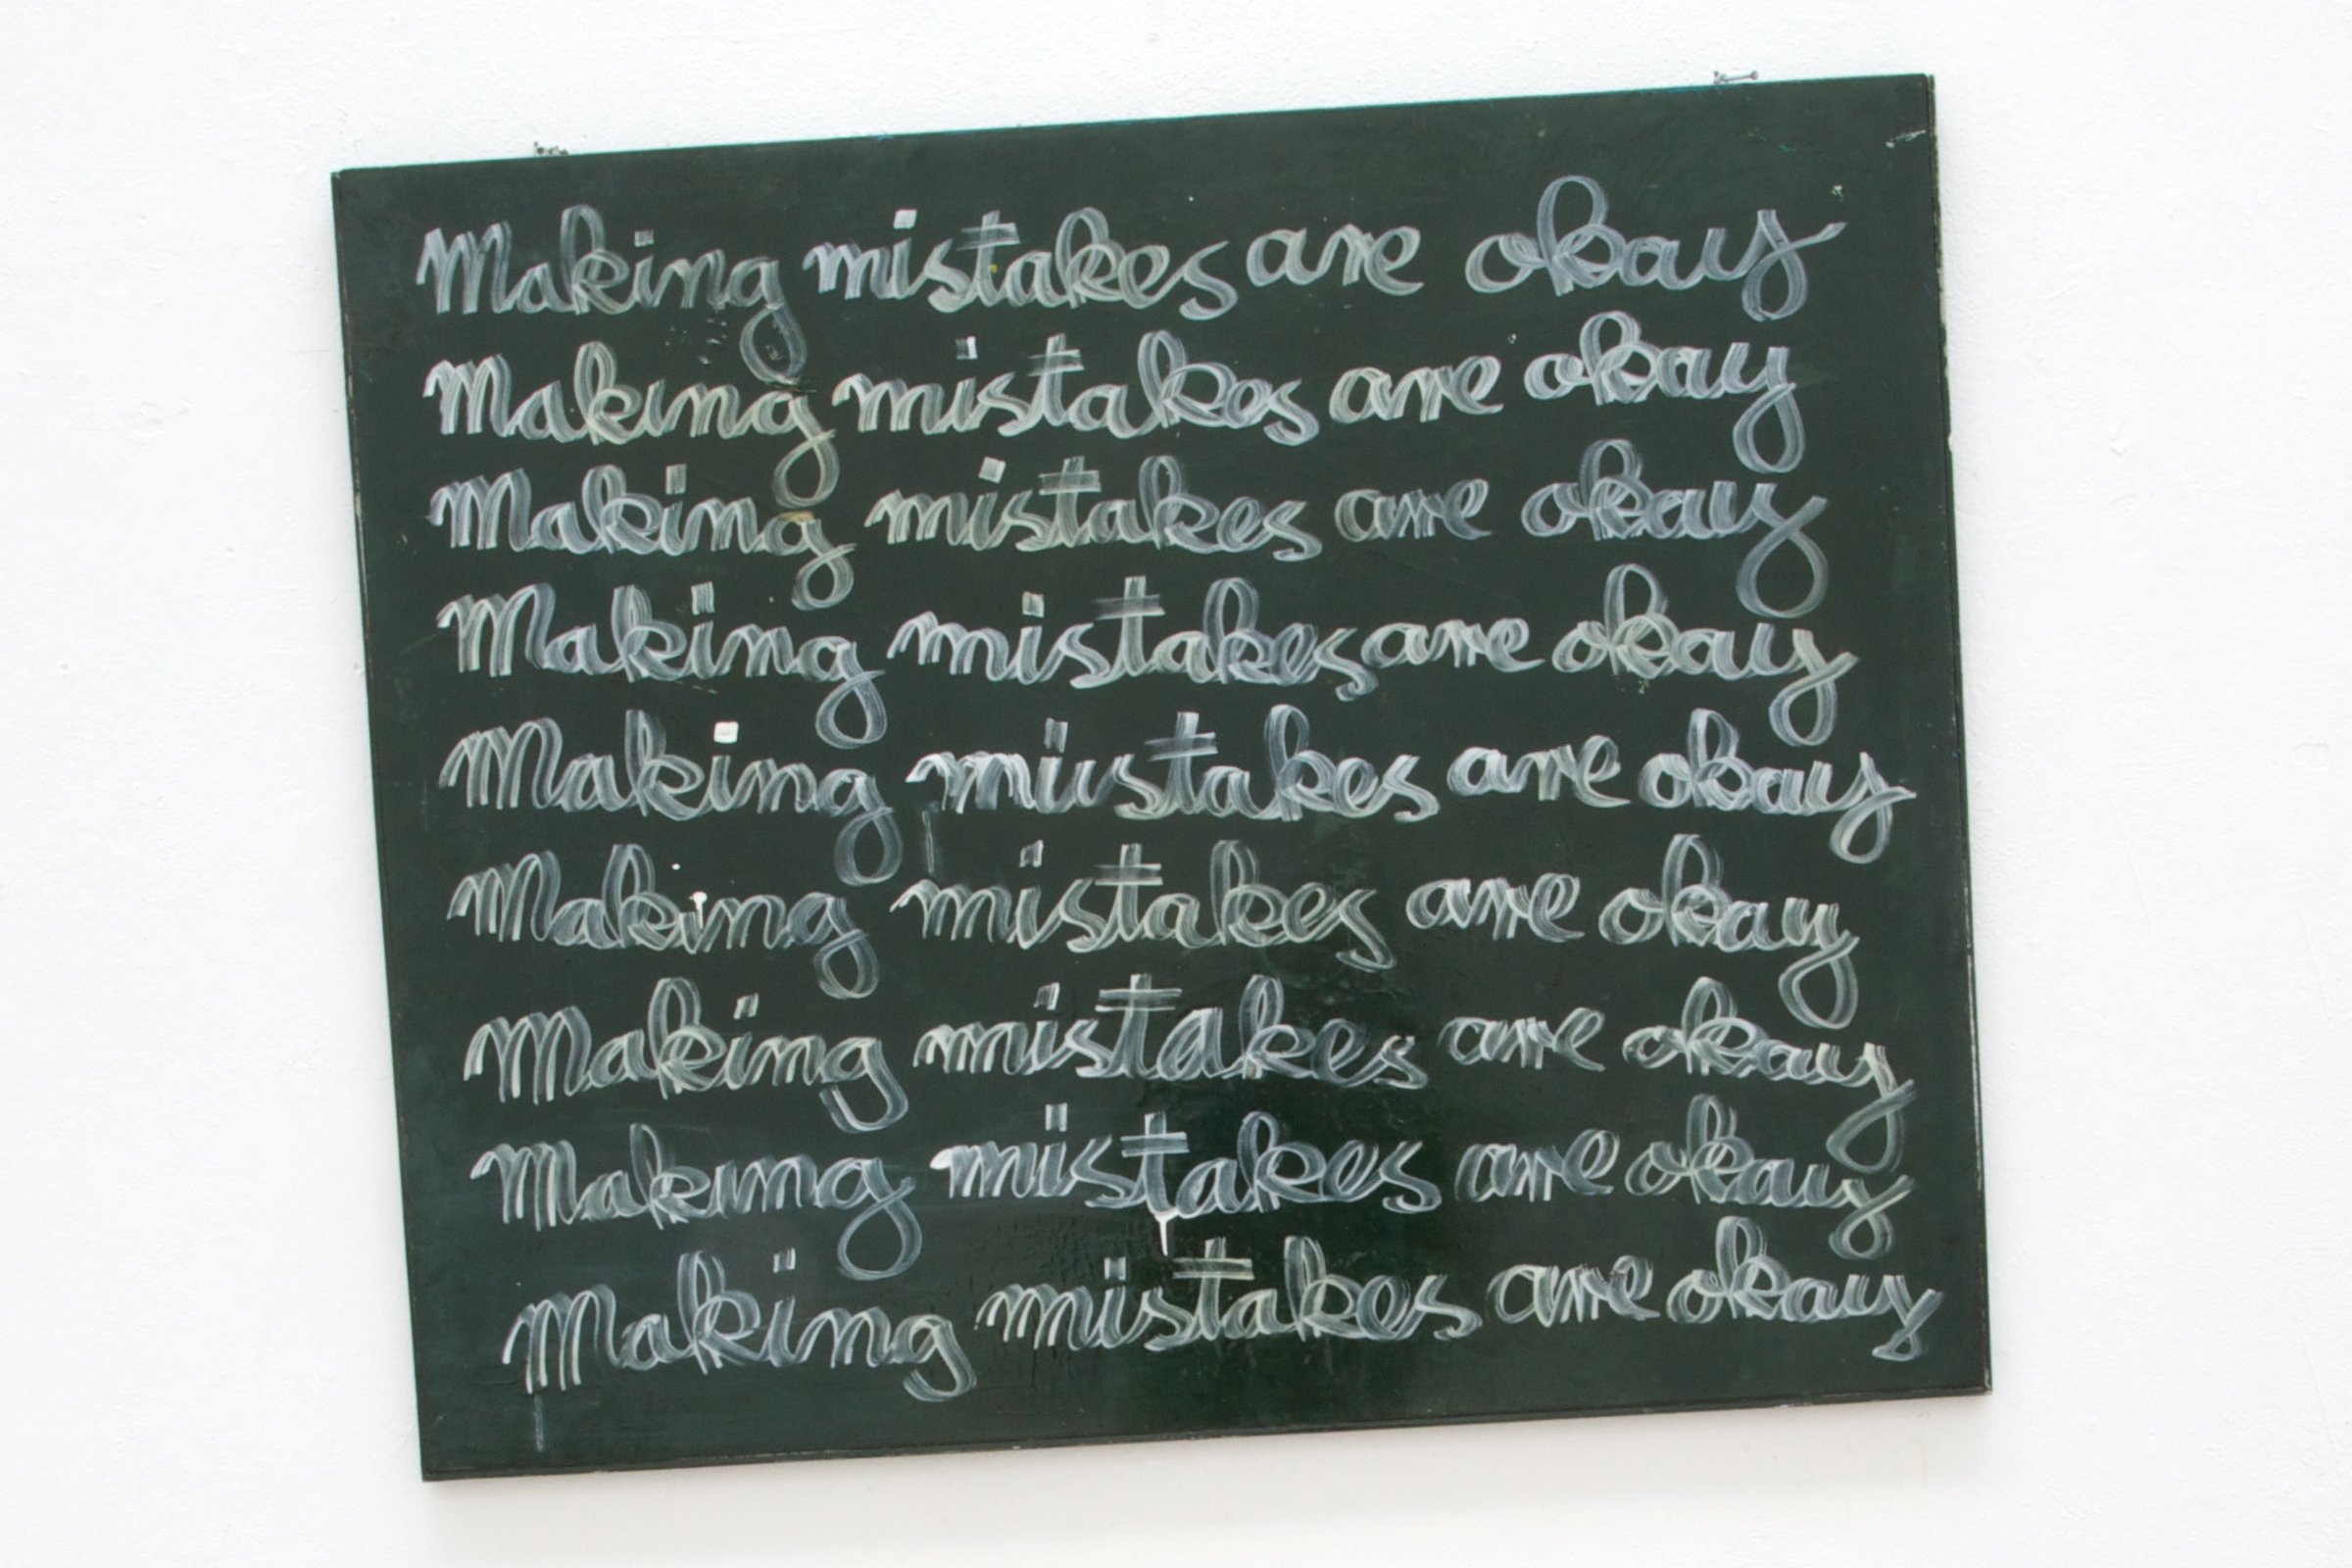 Making mistakes are okay
Making mistakes are okay
Making mistakes are okay
Making mistakes are okay
Making miustakes are okay
Making mistakes are okay
Making mistakes are okay
Making mistakes are okay
Making mistakes are okay